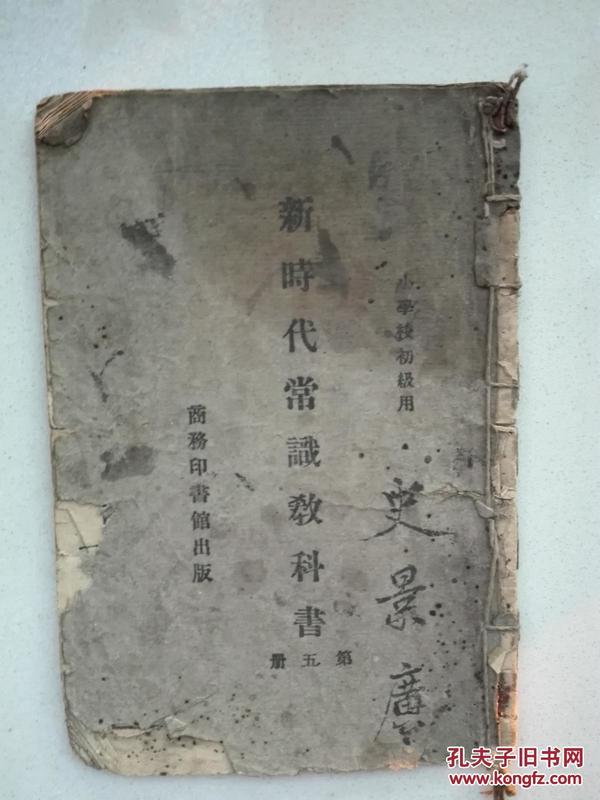 小學校初級用
史景廣
新時代常識教科書
第五册
商務印書館出版
孔夫子旧书网
www.kongfz.com